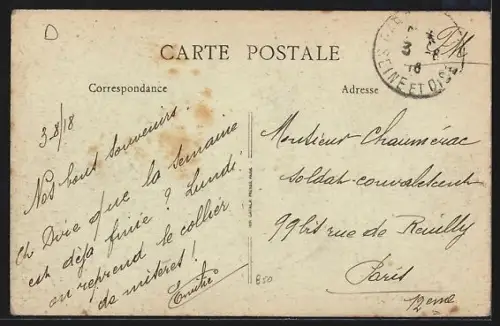 D
CARTE POSTALE
Correspondance
Adresse
SEINE ET OISE
3-8/18
Nos bons souvenirs.
que la semaine
est déjà finie ? Lundi
on reprend le collier
de misères !
Monsieur Chaumérac
soldat-convalescent
99bis rue de Reuilly
Paris
12ème
B50